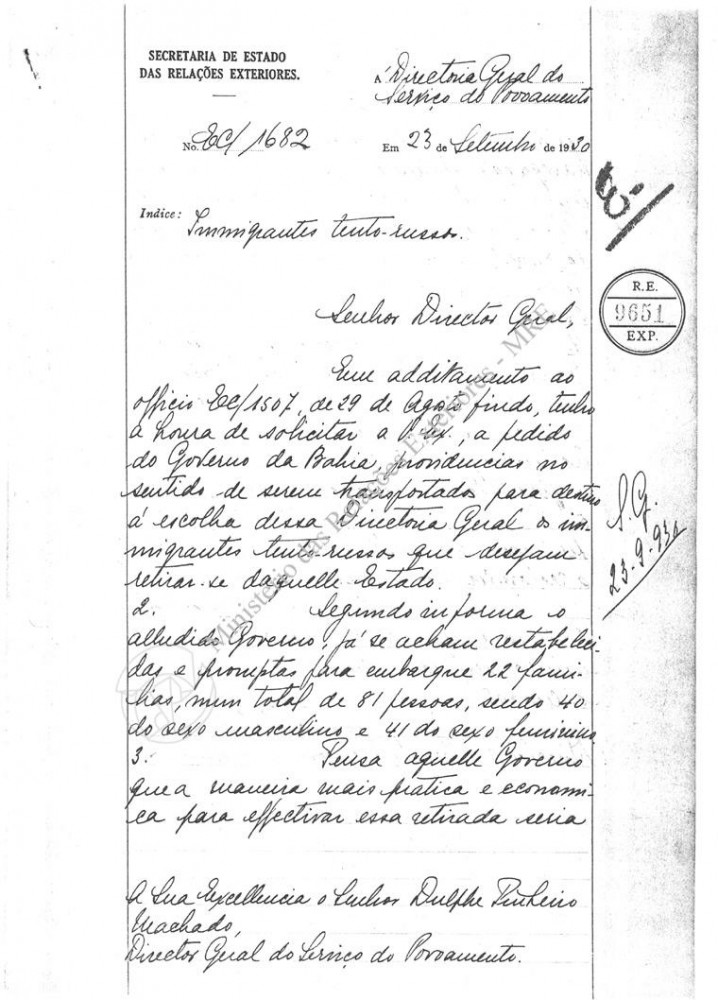 SECRETARIA DE ESTADO
DAS RELAÇÕES EXTERIORES.
Á Directoria Geral do
Serviço do Povoamento
No. EC/1682
Em 23 de Setembro de 1930
Indice: Immigrantes teuto-russos.
R.E.
9651
EXP.
Senhor Director Geral,
Em additamento ao
officio EC/1507, de 29 de Agosto findo, tenho
a honra de solicitar a V. Ex., a pedido
do Governo da Bahia, providencias no
sentido de serem transportados para destino
á escolha dessa Directoria Geral os im-
migrantes teuto-russos que desejam
retirar-se daquelle Estado.
2. Segundo informa o
alludido Governo, já se acham restabeleci
das e promptas para embarque 22 fami-
lias, num total de 81 pessoas, sendo 40
do sexo masculino e 41 do sexo feminino.
3. Pensa aquelle Governo
que a maneira mais pratica e economi-
ca para effectivar essa retirada seria
S.G.
23-9-930
A Sua Excellencia o Senhor Dulphe Pinheiro
Machado,
Director Geral do Serviço do Povoamento.
Ministério das Relações Exteriores - MRE